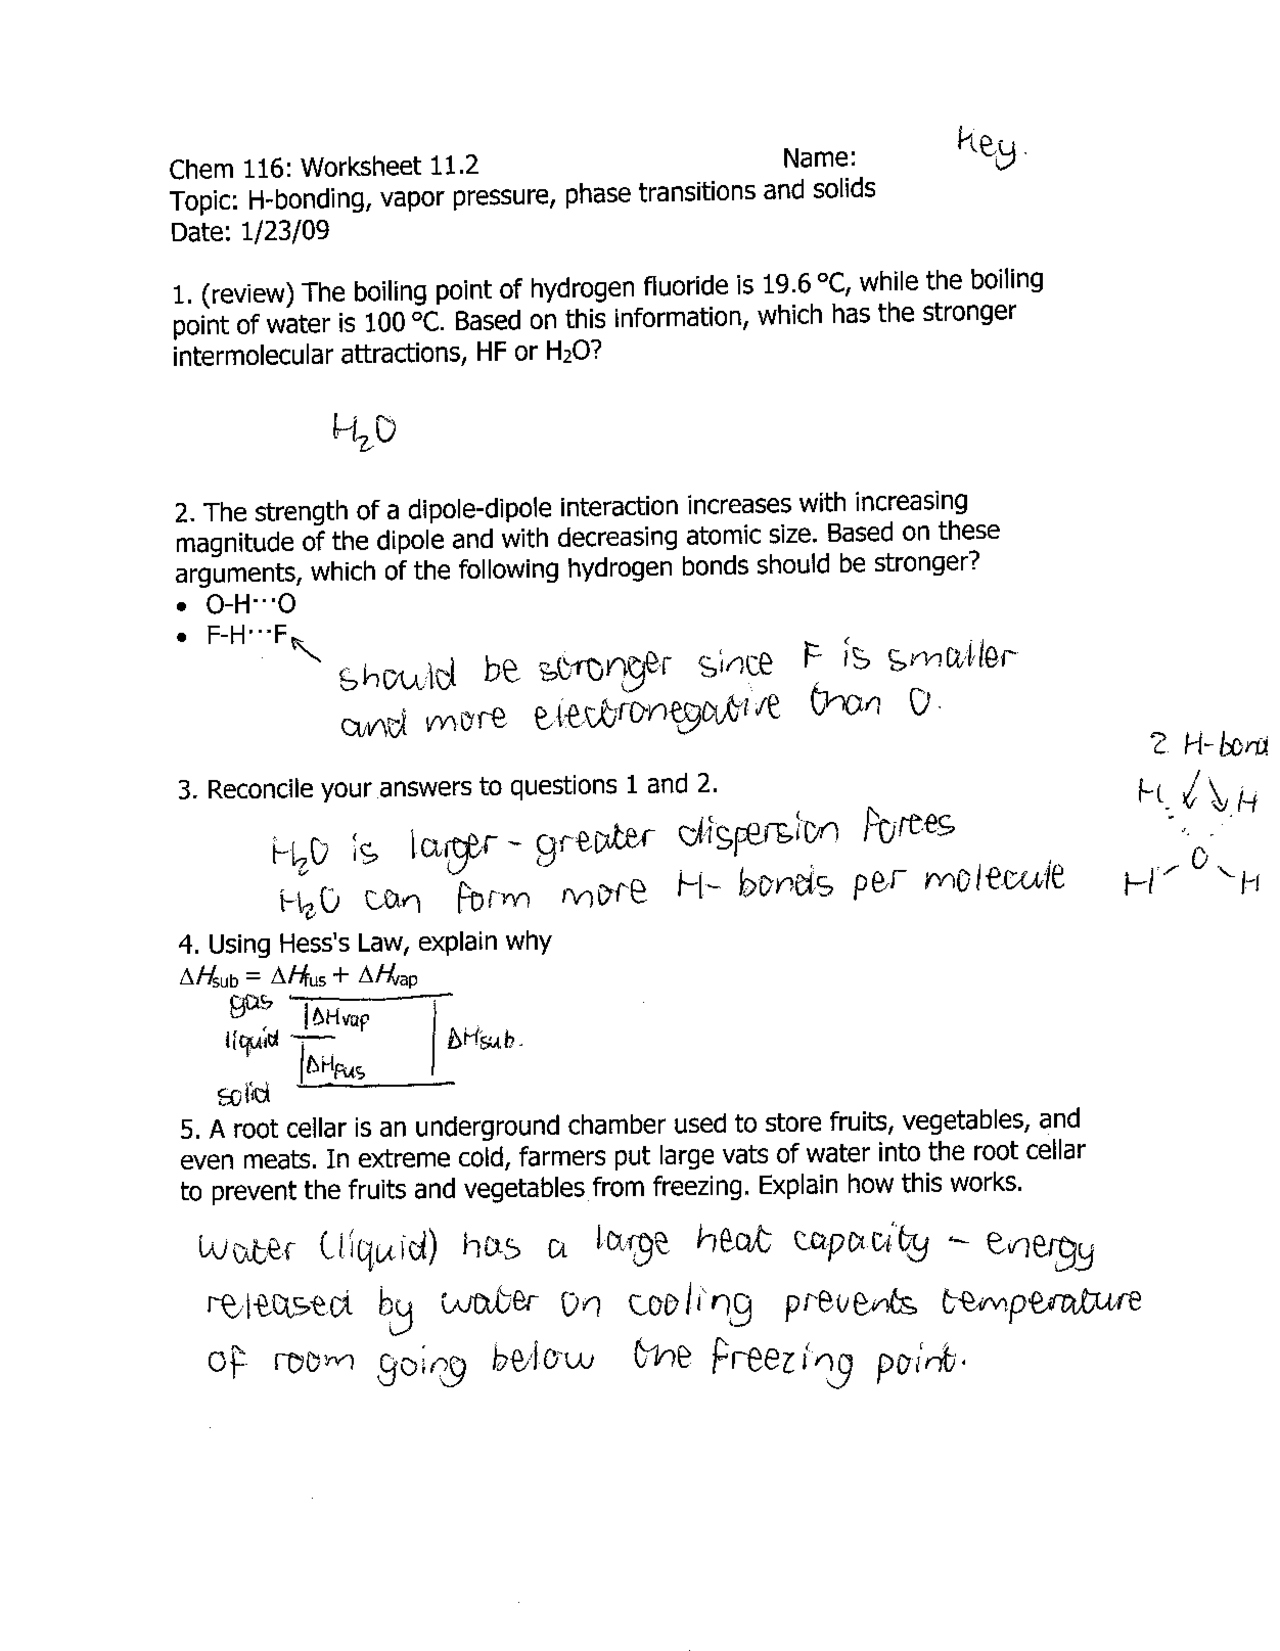 Key.
Chem 116: Worksheet 11.2 Name:
Topic: H-bonding, vapor pressure, phase transitions and solids
Date: 1/23/09
1. (review) The boiling point of hydrogen fluoride is 19.6 °C, while the boiling
point of water is 100 °C. Based on this information, which has the stronger
intermolecular attractions, HF or H₂O?
H₂O
2. The strength of a dipole-dipole interaction increases with increasing
magnitude of the dipole and with decreasing atomic size. Based on these
arguments, which of the following hydrogen bonds should be stronger?
• O-H···O
• F-H···F
should be stronger since F is smaller
and more electronegative than O.
2 H-bond
3. Reconcile your answers to questions 1 and 2.
H H
H₂O is larger - greater dispersion forces
H O H
H₂O can form more H-bonds per molecule
4. Using Hess's Law, explain why
ΔHsub = ΔHfus + ΔHvap
gas
ΔHvap
liquid ΔHsub.
ΔHfus
solid
5. A root cellar is an underground chamber used to store fruits, vegetables, and
even meats. In extreme cold, farmers put large vats of water into the root cellar
to prevent the fruits and vegetables from freezing. Explain how this works.
Water (liquid) has a large heat capacity - energy
released by water on cooling prevents temperature
of room going below the freezing point.